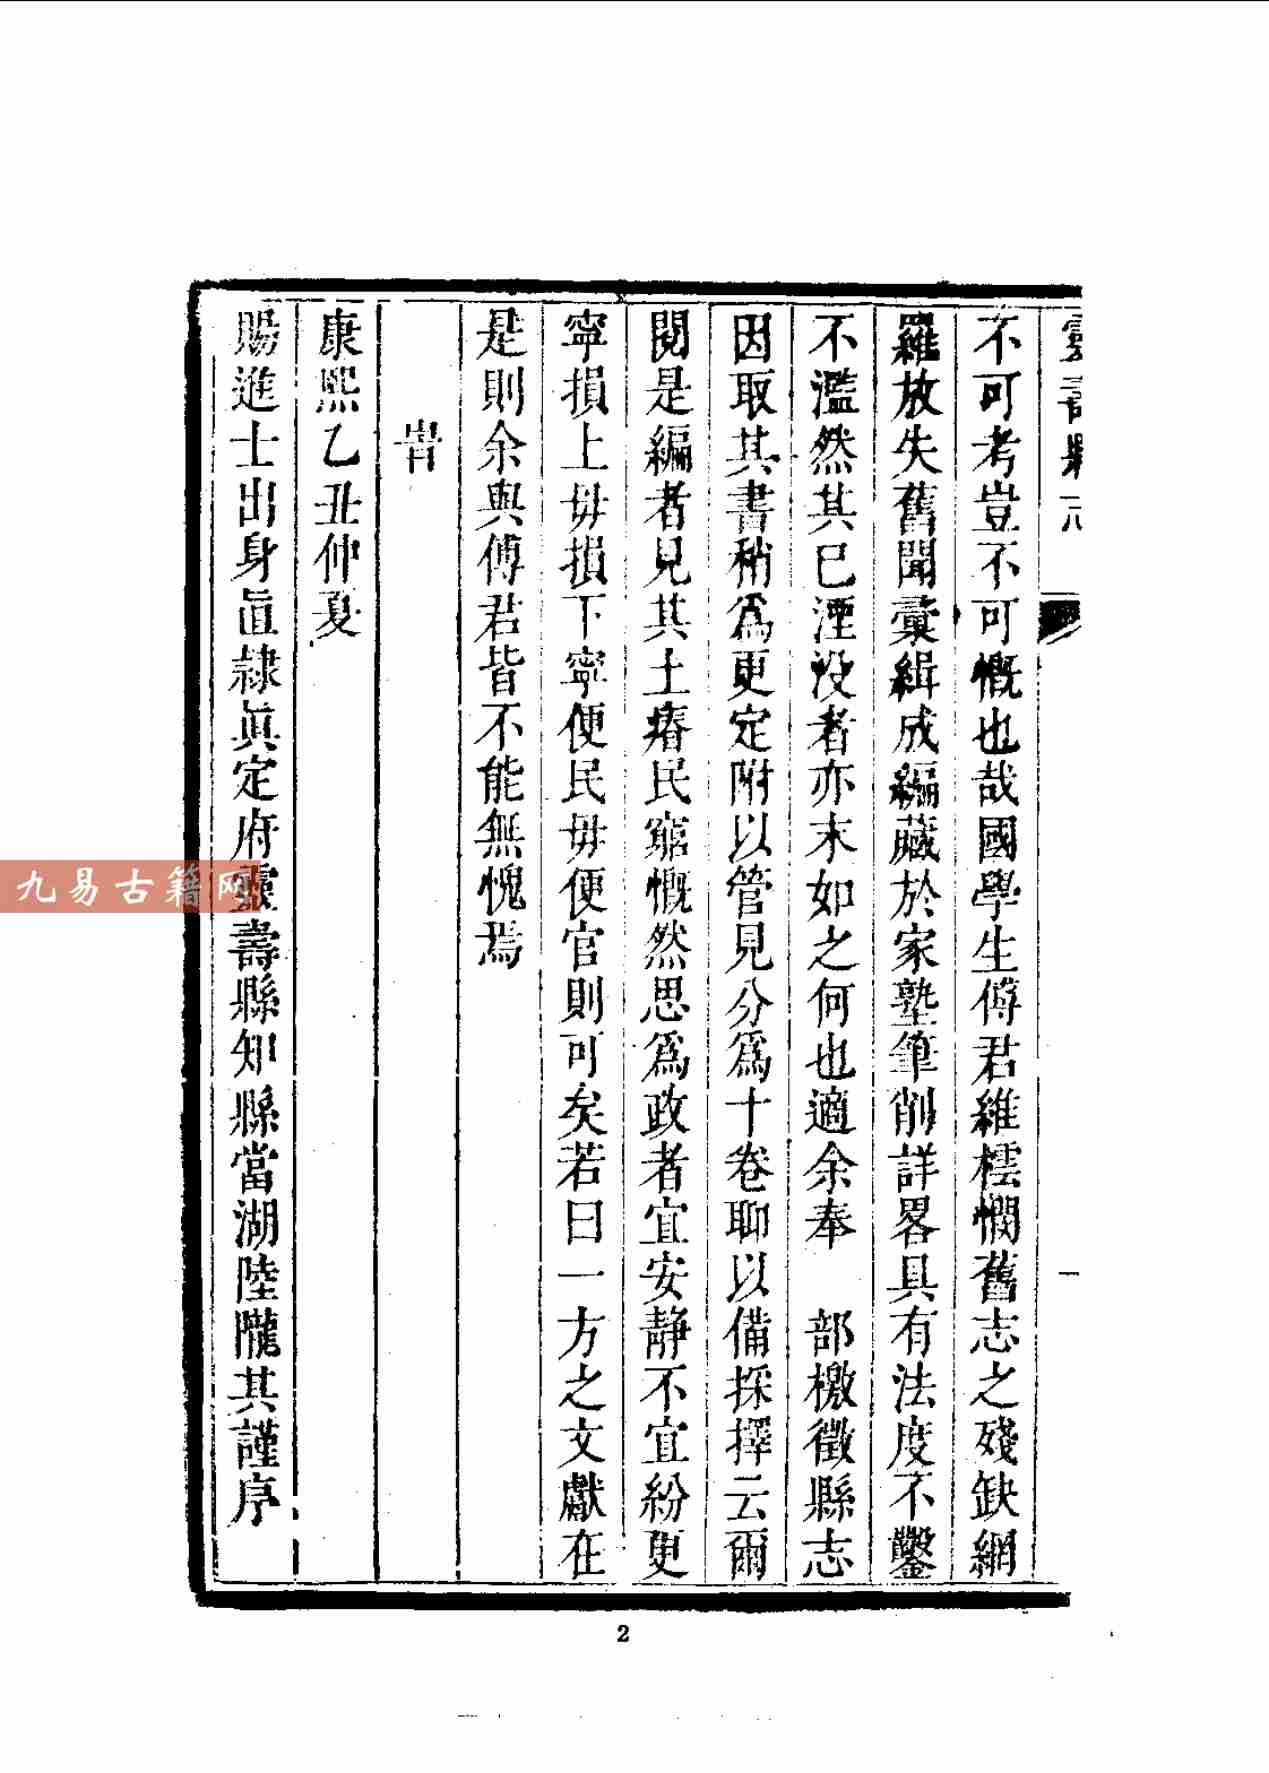 不可考豈不可慨也哉國學生傅君維橒憫舊志之殘缺網
羅放失舊聞彙緝成編藏於家塾筆削詳畧具有法度不鑿
不濫然其已湮没者亦末如之何也適余奉 部檄徵縣志
因取其書稍爲更定附以管見分爲十卷聊以備採擇云爾
閱是編者見其土瘠民窮慨然思爲政者宜安靜不宜紛更
寧損上毋損下寧便民毋便官則可矣若曰一方之文獻在
是則余與傅君皆不能無愧焉
旹
康熙乙丑仲夏
賜進士出身直隸眞定府靈壽縣知縣當湖陸隴其謹序
九易古籍网
2